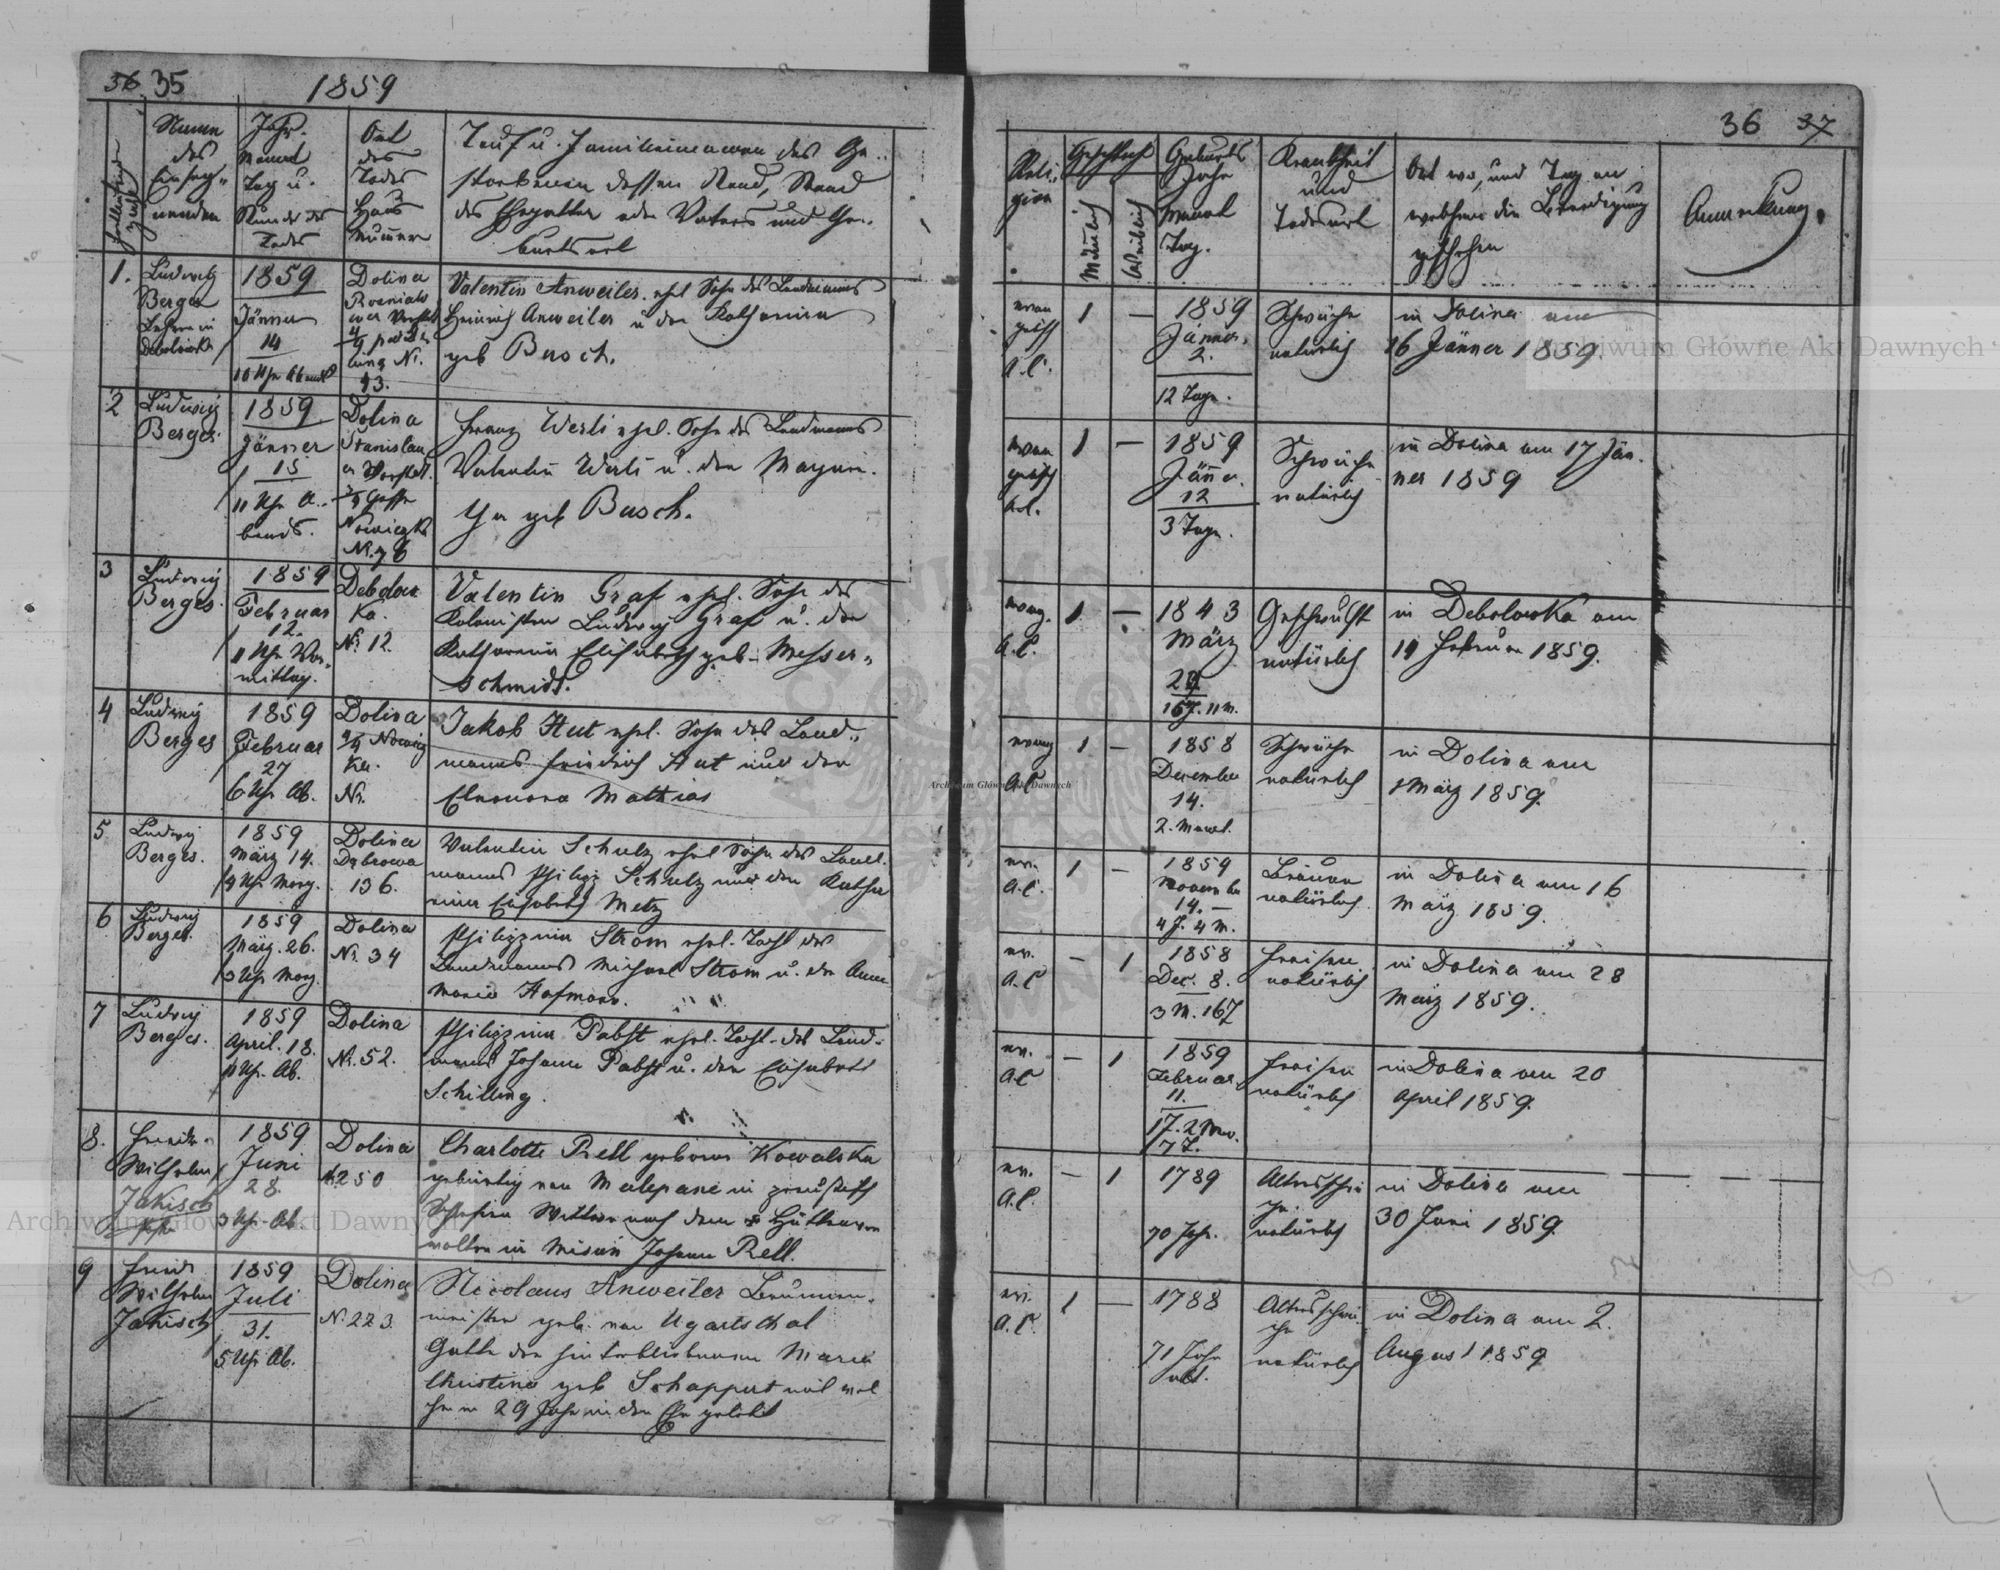 36 35
1859
Laufende Zahl
Namen
des
Einseg-
nenden
Jahr.
Monat
Tag u.
Stunde des
Todes
Ort
des
Todes
Haus
Nummer
Tauf u. Familiennamen des Ge-
storbenen dessen Stand, Stand
des Ehegatten oder Vaters und Ge-
burtsort
1.
Ludwig
Berges
Lehrer in
Debolowka
1859
Jänner
14
10 Uhr Abends
Dolina
No.
13.
Valentin Anweiler. ehel Sohn des Landmanns
Heinrich Anweiler u der Katharina
geb Busch.
2
Ludwig
Berges.
1859
Jänner
15
11 Uhr A-
bends.
Dolina
Vorstdt.
Nowiczka
Franz Werli ehel. Sohn des Landmanns
Valentin Werli u. der Magare-
tha geb Busch.
3
Ludwig
Berges.
1859
Februar
12.
11 Uhr Vor-
mittag.
Debolow
Ka.
Nr. 12.
Valentin Graf ehel. Sohn des
Kolonisten Ludwig Graf u. der
Katharina Elisabeth geb. Messer-
schmidt.
4
Ludwig
Berges
1859
Februar
27
6 Uhr Ab.
Dolina
Nowicz
Ka.
Nr.
Jakob Hut ehel. Sohn des Land-
manns Friedrich Hut und der
Eleonora Mathias
5
Ludwig
Berges.
1859
März 14.
Uhr Morg.
Dolina
Dąbrowa
136.
Valentin Schulz ehel Sohn des Land-
manns Philipp Schulz und der Katha
rina Elisabeth Metz
6
Ludwig
Berges.
1859
März. 26.
3 Uhr Morg.
Dolina
Nr. 34
Philippina Strom ehel. Tocht des
Landmanns Michael Strom u. der Anna
Maria Hofmann.
7
Ludwig
Berges.
1859
April. 18.
11 Uhr. Ab.
Dolina
Nr. 52.
Philippina Pabst ehel. Tocht. des Land-
manns Johann Pabst u. der Elisabeth
Schilling.
8.
Friedr.
Wilhelm
Jakisch
1859
Juni
28.
3 Uhr Ab.
Dolina
No 250
Charlotte Rell geborne Kowalska
gebürtig von Malapane in preußisch
Schlesien Wittwe nach dem
in Misuń Johann Rell.
9
Fried.
Wilhelm
Jakisch
1859
Juli
31.
5 Uhr Ab.
Dolina
N. 223.
Nicolaus Anweiler Brunnen-
meister geb. von Ugartsthal
Gatte der hinterbliebenen Maria
Christina geb Schappert mit wel
cher er 29 Jahre in der Ehe gelebt
36 37
Reli-
gion
Geschlecht
Männlich
Weiblich
Geburts
Jahr
Monat
Tag.
Krankheit
und
Todesart
Ort wo, und Tag an
welchem die Beerdigung
geschehen
Anmerkung.
evan
gelisch
A. C.
1
—
1859
Jänner.
2.
12 Tage.
Schwäche
natürlich
in Dolina am
16 Jänner 1859.
evan
gelisch
A.C.
1
—
1859
Jänner.
12
3 Tage.
Schwäche
natürlich
in Dolina am 17 Jän-
ner 1859
evang.
A.C.
1
—
1843
März
16 J. 11 M.
Geschwulst
natürlich
in Debolowka am
14 Februar 1859.
evang
A.C
1
—
1858
December
14.
2. Monat.
Schwäche
natürlich
in Dolina am
1 März 1859.
ev.
A.C.
1
—
1859
November
14. —
4 J. 4 M.
Bräune
natürlich
in Dolina am 16
März 1859.
ev.
A.C
—
1
1858
Dec. 8.
3 M. 16 T
Fraisen
natürlich
in Dolina am 28
März 1859.
ev.
A.C
—
1
1859
Februar
11.
7 T.
Fraisen
natürlich
in Dolina am 20
April 1859.
ev.
A.C.
—
1
1789
70 Jahr.
Altersschwä
che.
natürlich
in Dolina am
30 Juni 1859.
ev.
A.C.
1
—
1788
71 Jahr
alt.
Altersschwä
che
natürlich
in Dolina am 2.
August 1859
Archiwum Główne Akt Dawnych
Archiwum Główne Akt Dawnych
Archiwum Główne Akt Dawnych